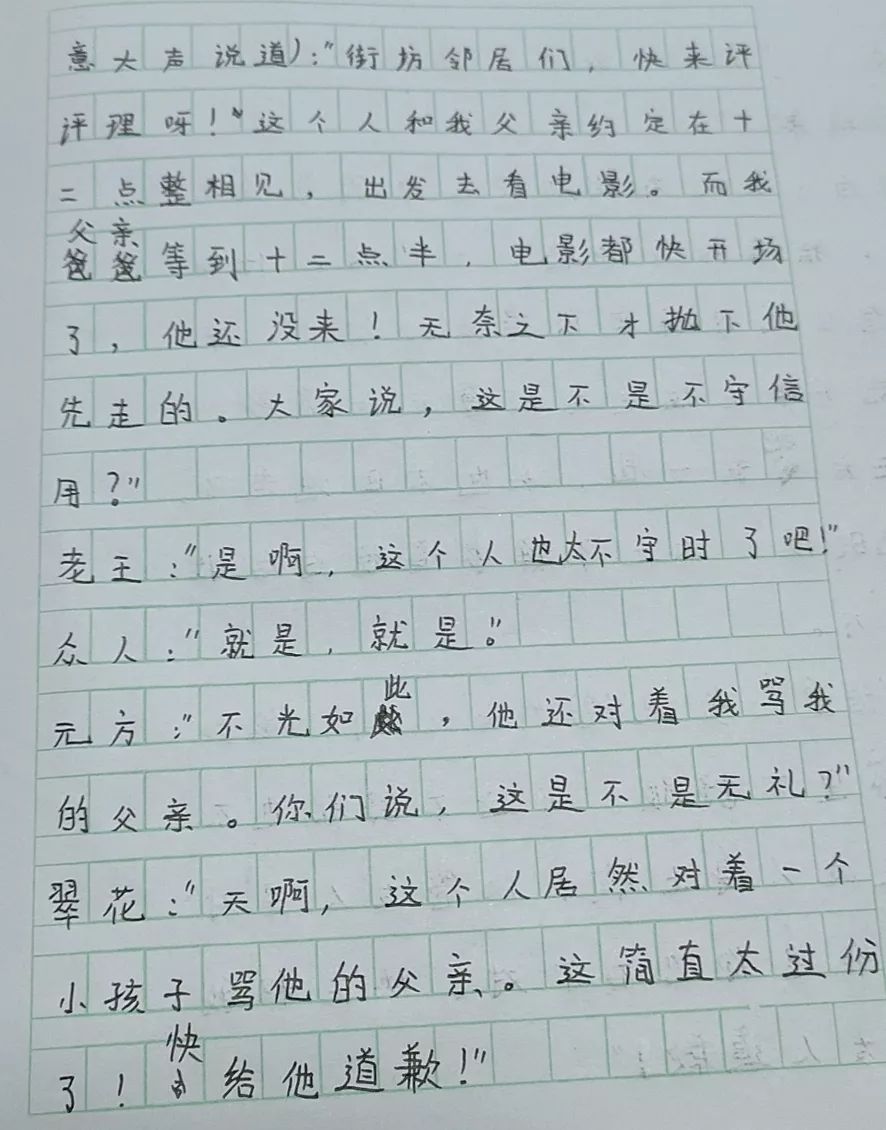 意大声说道):"街坊邻居们，快来评
评理呀！"这个人和我父亲约定在十
二点整相见，出发去看电影。而我
父亲
爸爸等到十二点半，电影都快开场
了，他还没来！无奈之下才抛下他
先走的。大家说，这是不是不守信
用？"
老王："是啊，这个人也太不守时了吧！"
众人："就是，就是。"
此
元方："不光如，他还对着我骂我
的父亲。你们说，这是不是无礼？"
翠花："天啊，这个人居然对着一个
小孩子骂他的父亲。这简直太过份
快
了！给他道歉！"